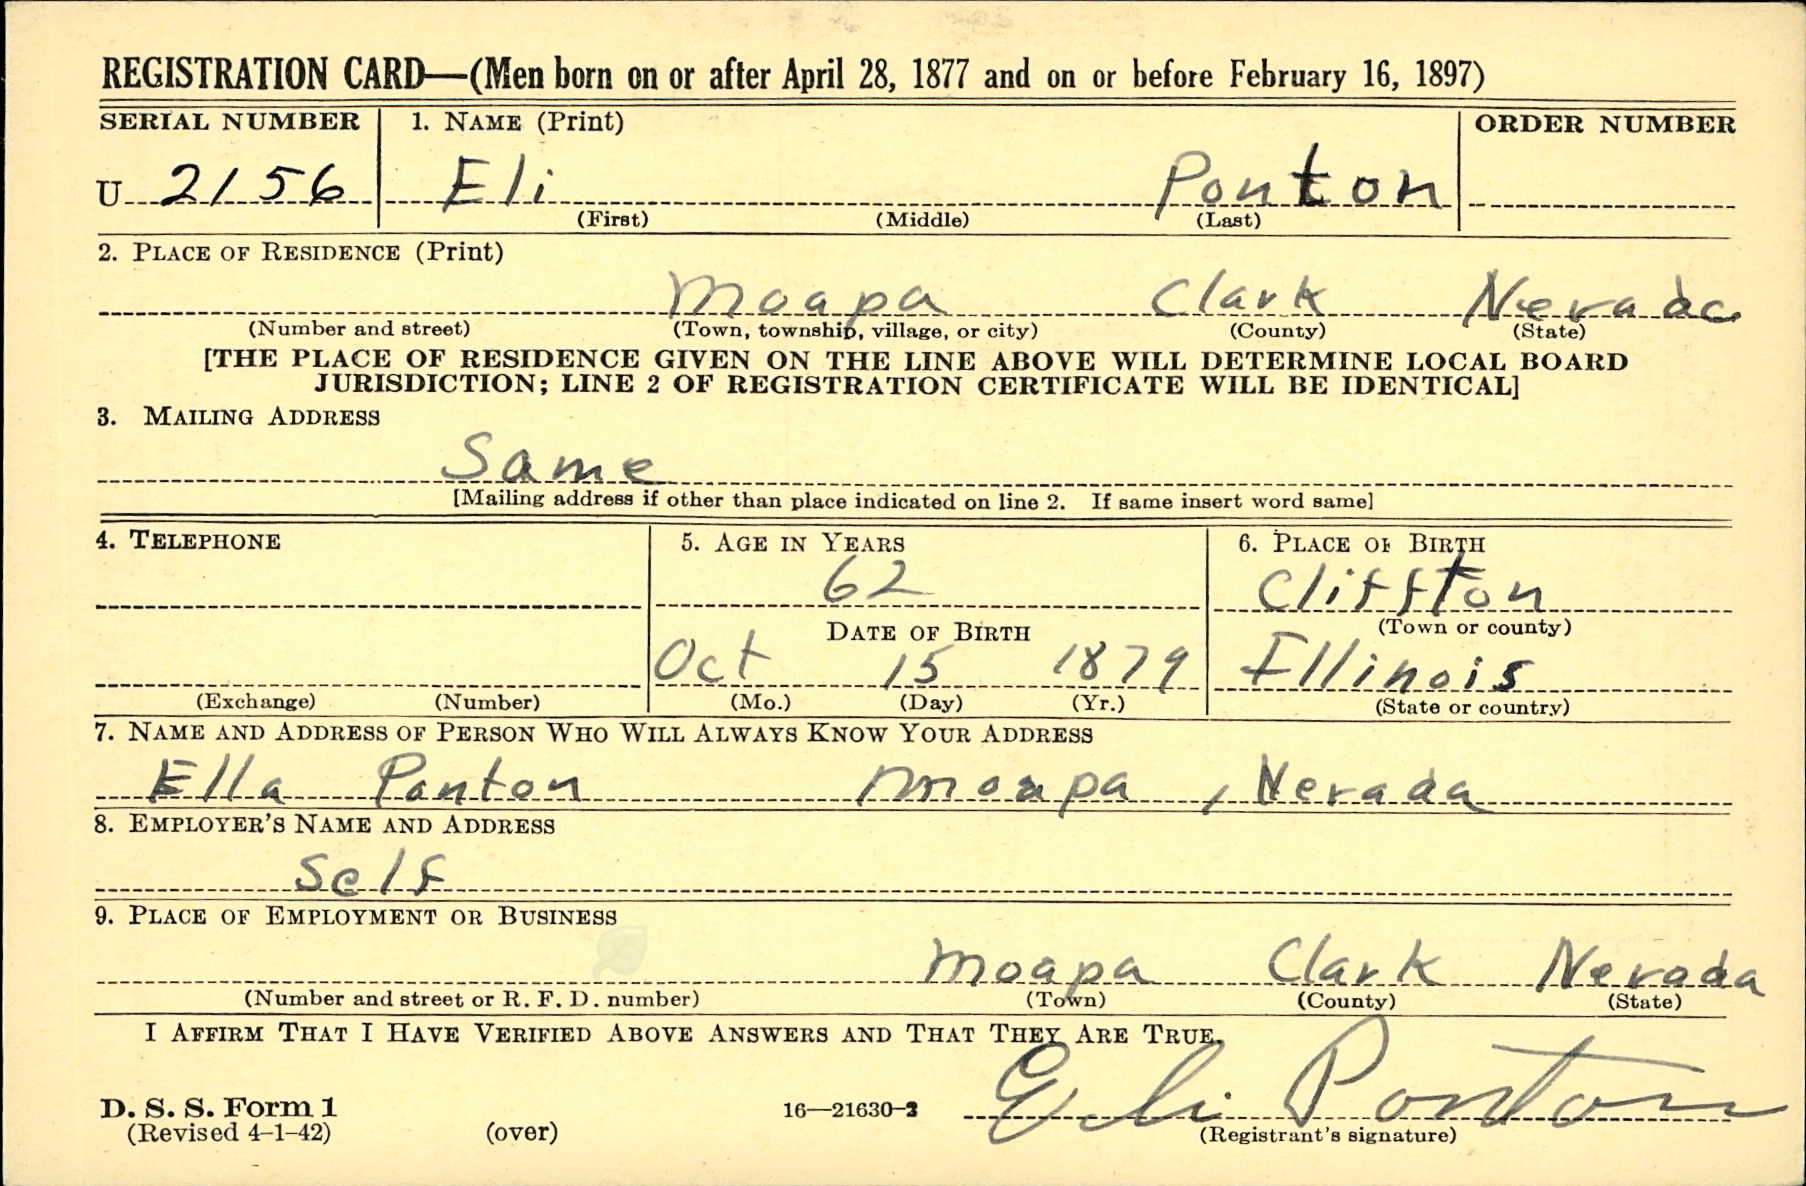 REGISTRATION CARD—(Men born on or after April 28, 1877 and on or before February 16, 1897)
SERIAL NUMBER 1. NAME (Print) ORDER NUMBER
U 2156 Eli Ponton
(First) (Middle) (Last)
2. PLACE OF RESIDENCE (Print)
Moapa Clark Nevada
(Number and street) (Town, township, village, or city) (County) (State)
[THE PLACE OF RESIDENCE GIVEN ON THE LINE ABOVE WILL DETERMINE LOCAL BOARD
JURISDICTION; LINE 2 OF REGISTRATION CERTIFICATE WILL BE IDENTICAL]
3. MAILING ADDRESS
Same
[Mailing address if other than place indicated on line 2. If same insert word same]
4. TELEPHONE 5. AGE IN YEARS 6. PLACE OF BIRTH
62 Cliffton
DATE OF BIRTH (Town or county)
Oct 15 1879 Illinois
(Exchange) (Number) (Mo.) (Day) (Yr.) (State or country)
7. NAME AND ADDRESS OF PERSON WHO WILL ALWAYS KNOW YOUR ADDRESS
Ella Ponton Moapa, Nevada
8. EMPLOYER'S NAME AND ADDRESS
Self
9. PLACE OF EMPLOYMENT OR BUSINESS
Moapa Clark Nevada
(Number and street or R. F. D. number) (Town) (County) (State)
I AFFIRM THAT I HAVE VERIFIED ABOVE ANSWERS AND THAT THEY ARE TRUE.
D. S. S. Form 1 16—21630-2 Eli Ponton
(Revised 4-1-42) (over) (Registrant's signature)